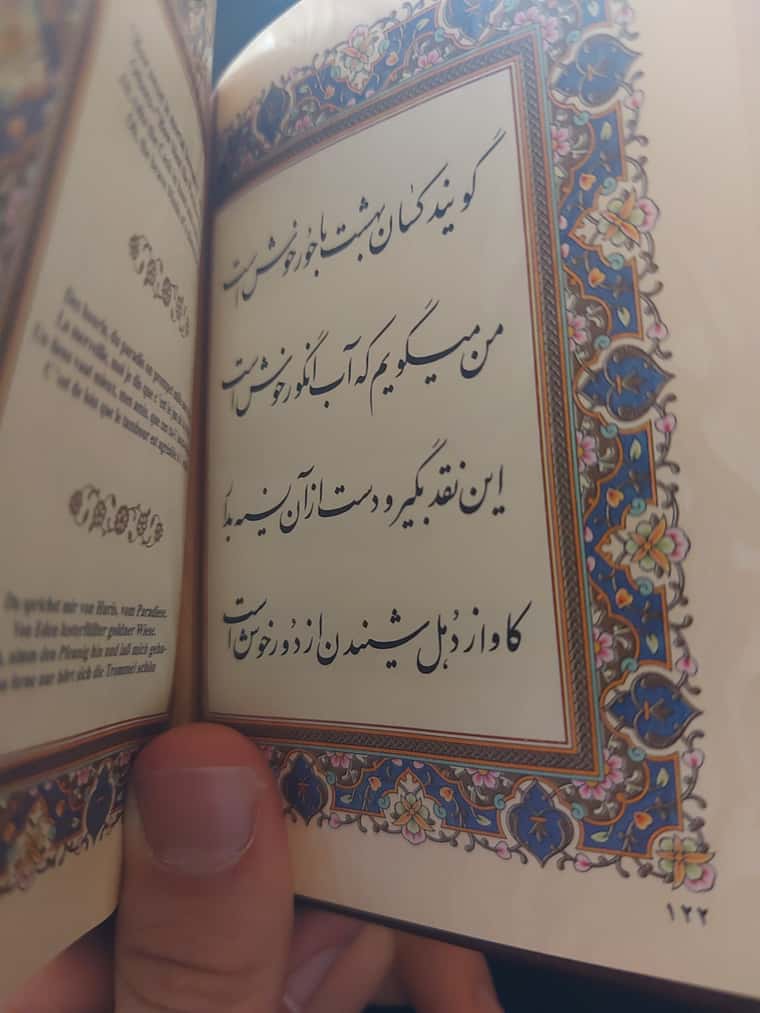 گویند کسان بهشت با حور خوش است
من میگویم که آب انگور خوش است
این نقد بگیر و دست از آن نسیه بدار
کاواز دهل شنیدن از دور خوش است
۱۲۲
Des houris, du paradis on promet
La merveille, moi je dis que c'est le jus de
Un tiens vaut mieux, mon ami, que
C'est de loin que le tambour est agréable
Du sprichst mir von Huris, vom Paradiese,
Von Eden lusterfüllter goldner Wiese.
nimm den Pfennig hin und laß mich gehn
ferne nur hört sich die Trommel schön